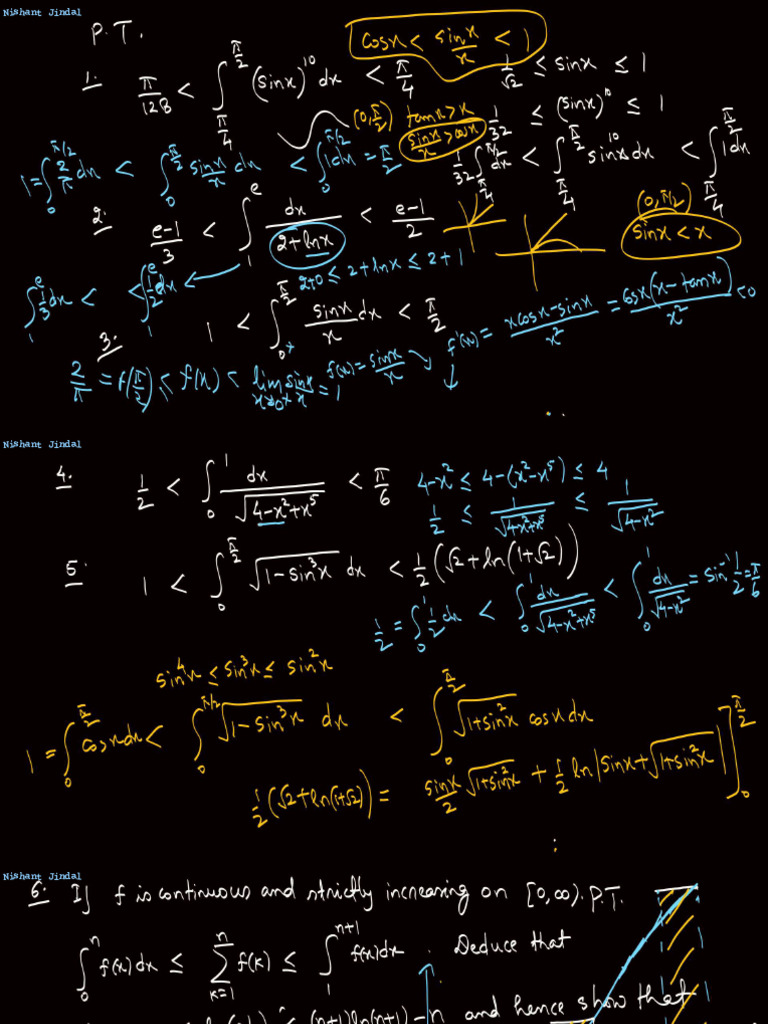 Nishant Jindal
P.T.
cosx < sinx/x < 1
1. π/128 < ∫_{π/4}^{π/2} (sinx)^10 dx < π/4
1/√2 ≤ sinx ≤ 1
(0, π/2) tanx > x
1/32 ≤ (sinx)^10 ≤ 1
sinx/x > cosx
1 = ∫_0^{π/2} 2/π dx < ∫_0^{π/2} sinx/x dx < ∫_0^{π/2} 1 dx = π/2
1/32 ∫_{π/4}^{π/2} dx < ∫_{π/4}^{π/2} sin^10 x dx < ∫_{π/4}^{π/2} 1 dx
2. e-1/3 < ∫_1^e dx/(2+lnx) < e-1/2
(0, π/2)
sinx < x
2+0 ≤ 2+lnx ≤ 2+1
∫_1^e 1/3 dx < < ∫_1^e 1/2 dx <
3. 1 < ∫_{0+}^{π/2} sinx/x dx < π/2
f'(x) = (xcosx - sinx)/x^2 = cosx(x - tanx)/x^2 < 0
f(x) = sinx/x
2/π = f(π/2) < f(x) < lim_{x→0+} sinx/x = 1
Nishant Jindal
4. 1/2 < ∫_0^1 dx/√(4-x^2+x^5) < π/6
4-x^2 ≤ 4-(x^2-x^5) ≤ 4
1/2 ≤ 1/√(4-x^2+x^5) ≤ 1/√(4-x^2)
5. 1 < ∫_0^{π/2} √(1-sin^3 x) dx < 1/2 (√2 + ln(1+√2))
1/2 = ∫_0^1 1/2 dx < ∫_0^1 dx/√(4-x^2+x^5) < ∫_0^1 dx/√(4-x^2) = sin^-1 1/2 = π/6
sin^4 x ≤ sin^3 x ≤ sin^2 x
1 = ∫_0^{π/2} cosx dx < ∫_0^{π/2} √(1-sin^3 x) dx < ∫_0^{π/2} √(1+sin^2 x) cosx dx
1/2 (√2+ln(1+√2)) = sinx/2 √(1+sin^2 x) + 1/2 ln|sinx+√(1+sin^2 x)| ]_0^{π/2}
Nishant Jindal
6. If f is continuous and strictly increasing on [0,∞). P.T.
∫_0^n f(x)dx ≤ Σ_{k=1}^n f(k) ≤ ∫_1^{n+1} f(x)dx. Deduce that
(n+1)ln(n+1)-n and hence show that